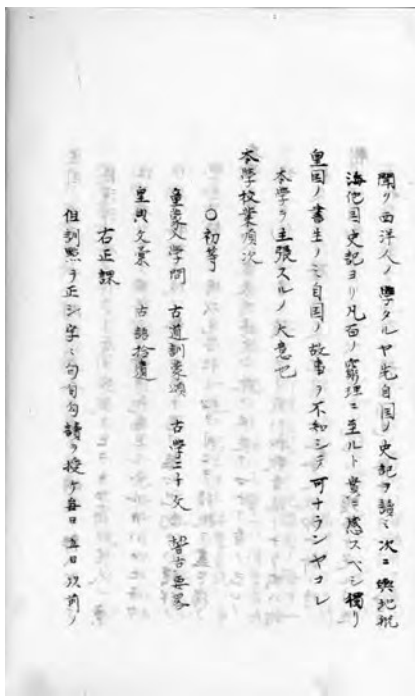 聞ク西洋人ノ學タルヤ先自国ノ史記ヲ讀ミ次ニ輿地航
海他国史記ヨリ凡百ノ窮理ニ至ルト實ニ感スベシ獨リ
皇国ノ書生ノミ自国ノ故事ヲ不知シテ可ナランヤコレ
本学ヲ主張スルノ大意也
本學校業順次
〇初等
童蒙入学問 古道訓蒙頌 古学二千文 稽古要略
皇典文彙 古語拾遺
右正課
但訓點ヲ正シ字ミ句句讀ヲ授ケ每日每日次前ノ